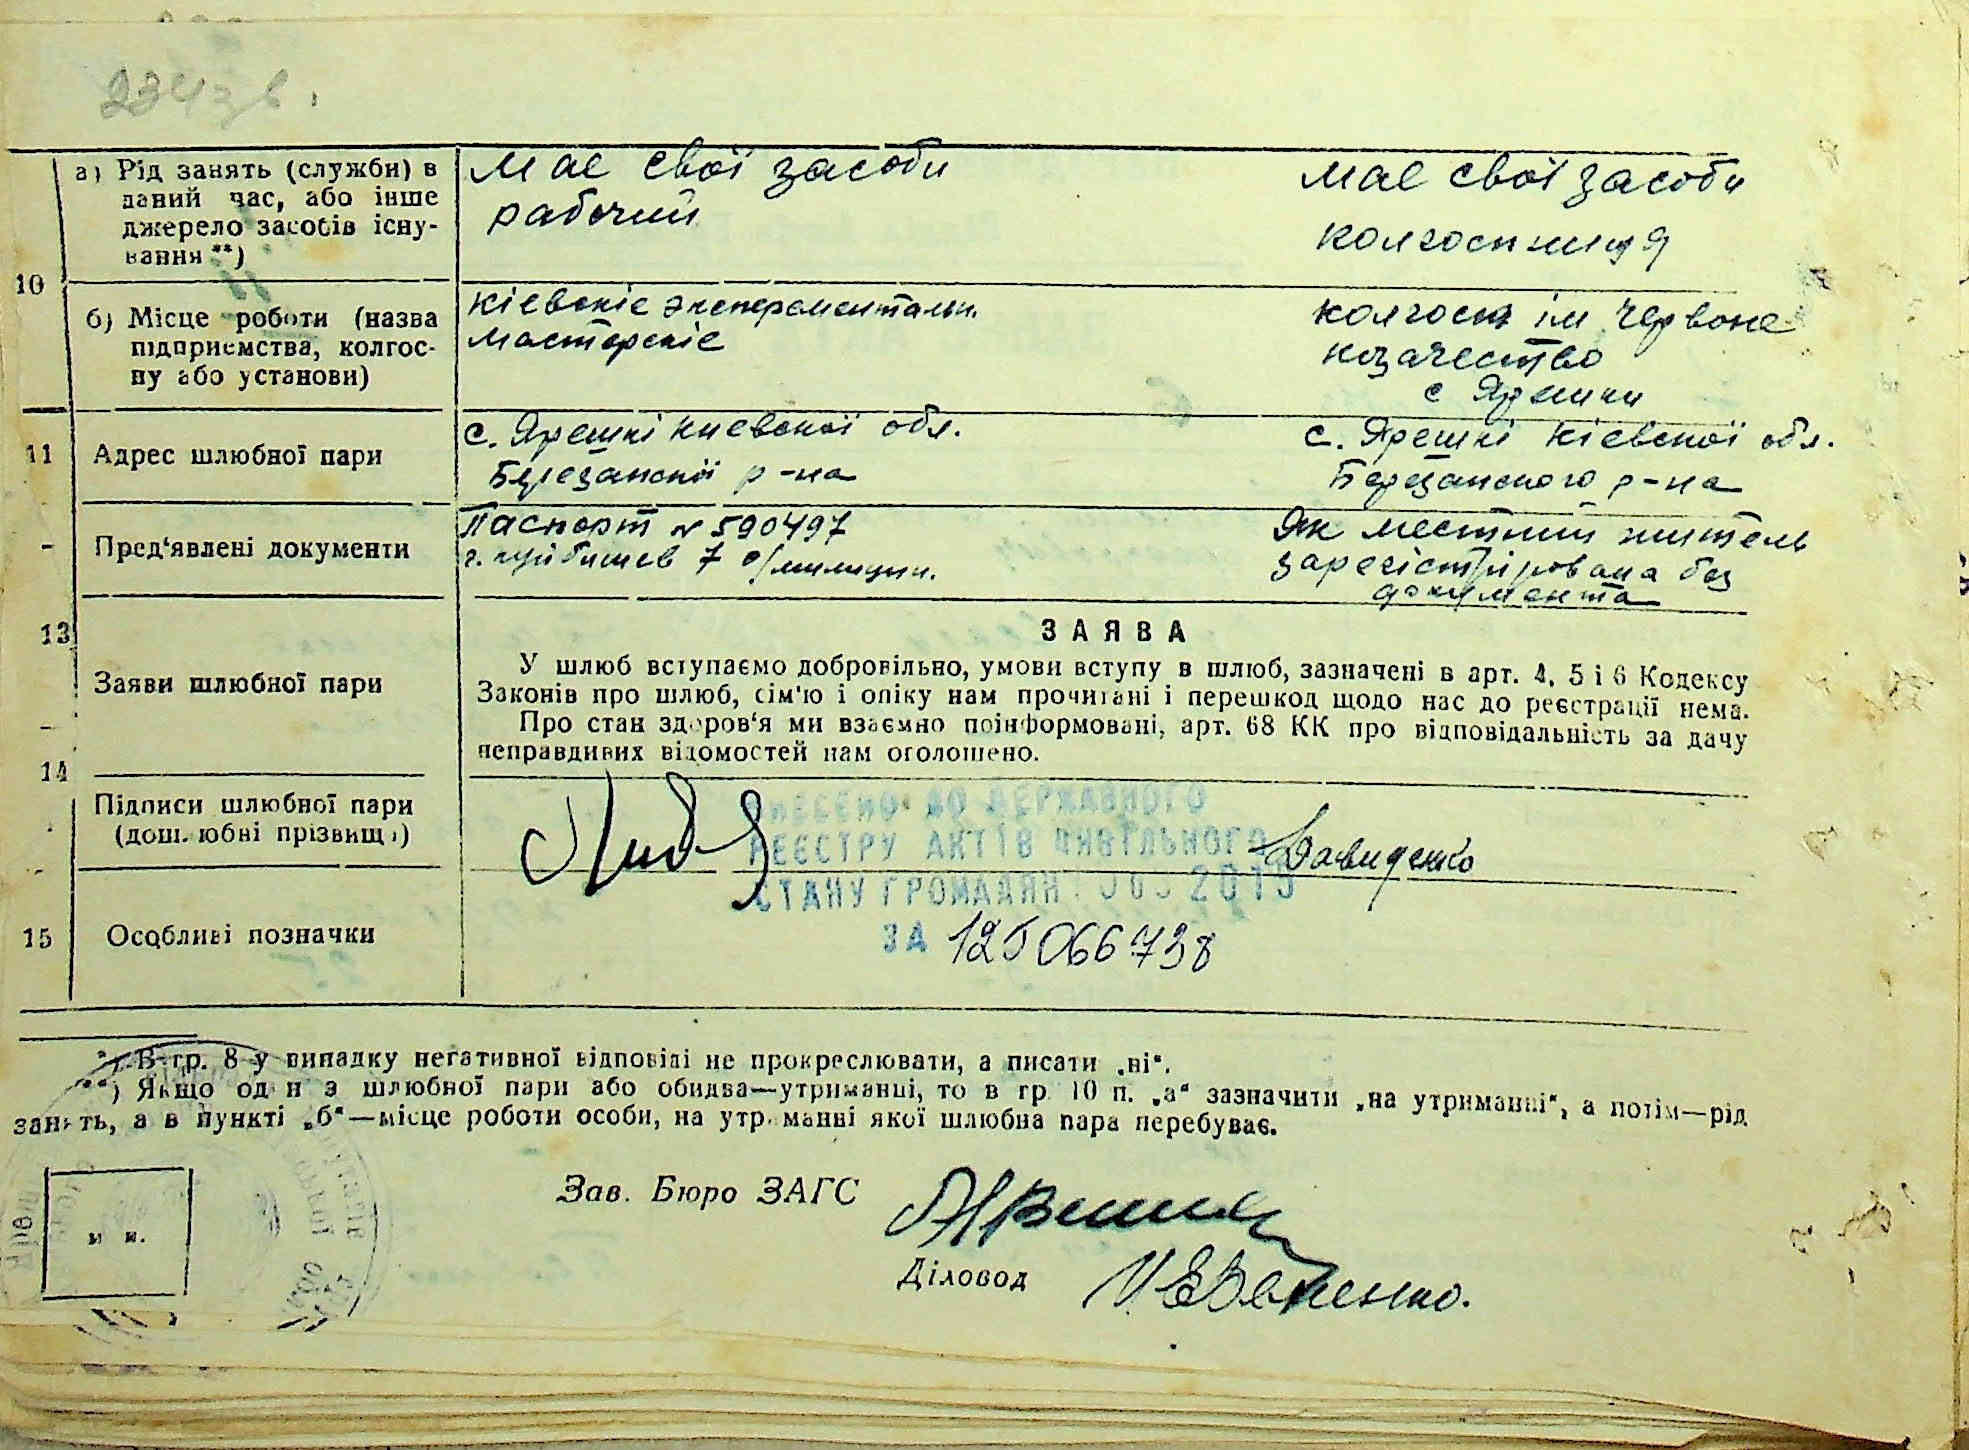 234 зв.
а) Рід занять (служби) в
даний час, або інше
джерело засобів існу-
вання **)
має свої засоби
рабочий
має свої засоби
колгоспниця
10
б) Місце роботи (назва
підприємства, колгос-
пу або установи)
Кіевскіе эксперементальн.
мастерскіе
колгосп ім Червоне
козачество
с Ярешки
11
Адрес шлюбної пари
с. Ярешкі Киевскої обл.
Березанскої р-на
с. Ярешкі Кіевскої обл.
Березанского р-на
Пред'явлені документи
Паспорт № 590497
г. Куйбишев 7 о/милиции.
Як местний житель
зарегістрірована без
документа
13
Заяви шлюбної пари
ЗАЯВА
У шлюб вступаємо добровільно, умови вступу в шлюб, зазначені в арт. 4, 5 і 6 Кодексу
Законів про шлюб, сім'ю і опіку нам прочитані і перешкод щодо нас до реєстрації нема.
Про стан здоров'я ми взаємно поінформовані, арт. 68 КК про відповідальність за дачу
неправдивих відомостей нам оголошено.
14
Підписи шлюбної пари
(дошлюбні прізвища)
Давиденко
ВНЕСЕНО ДО ДЕРЖАВНОГО
РЕЄСТРУ АКТІВ ЦИВІЛЬНОГО
СТАНУ ГРОМАДЯН 2015
ЗА
15
Особливі позначки
*) В гр. 8 у випадку негативної відповіді не прокреслювати, а писати „ні“.
**) Якщо один з шлюбної пари або обидва—утриманці, то в гр. 10 п. „а“ зазначити „на утриманні“, а потім—рід
занять, а в пункті „б“—місце роботи особи, на утриманні якої шлюбна пара перебуває.
Зав. Бюро ЗАГС
Діловод
м. п.